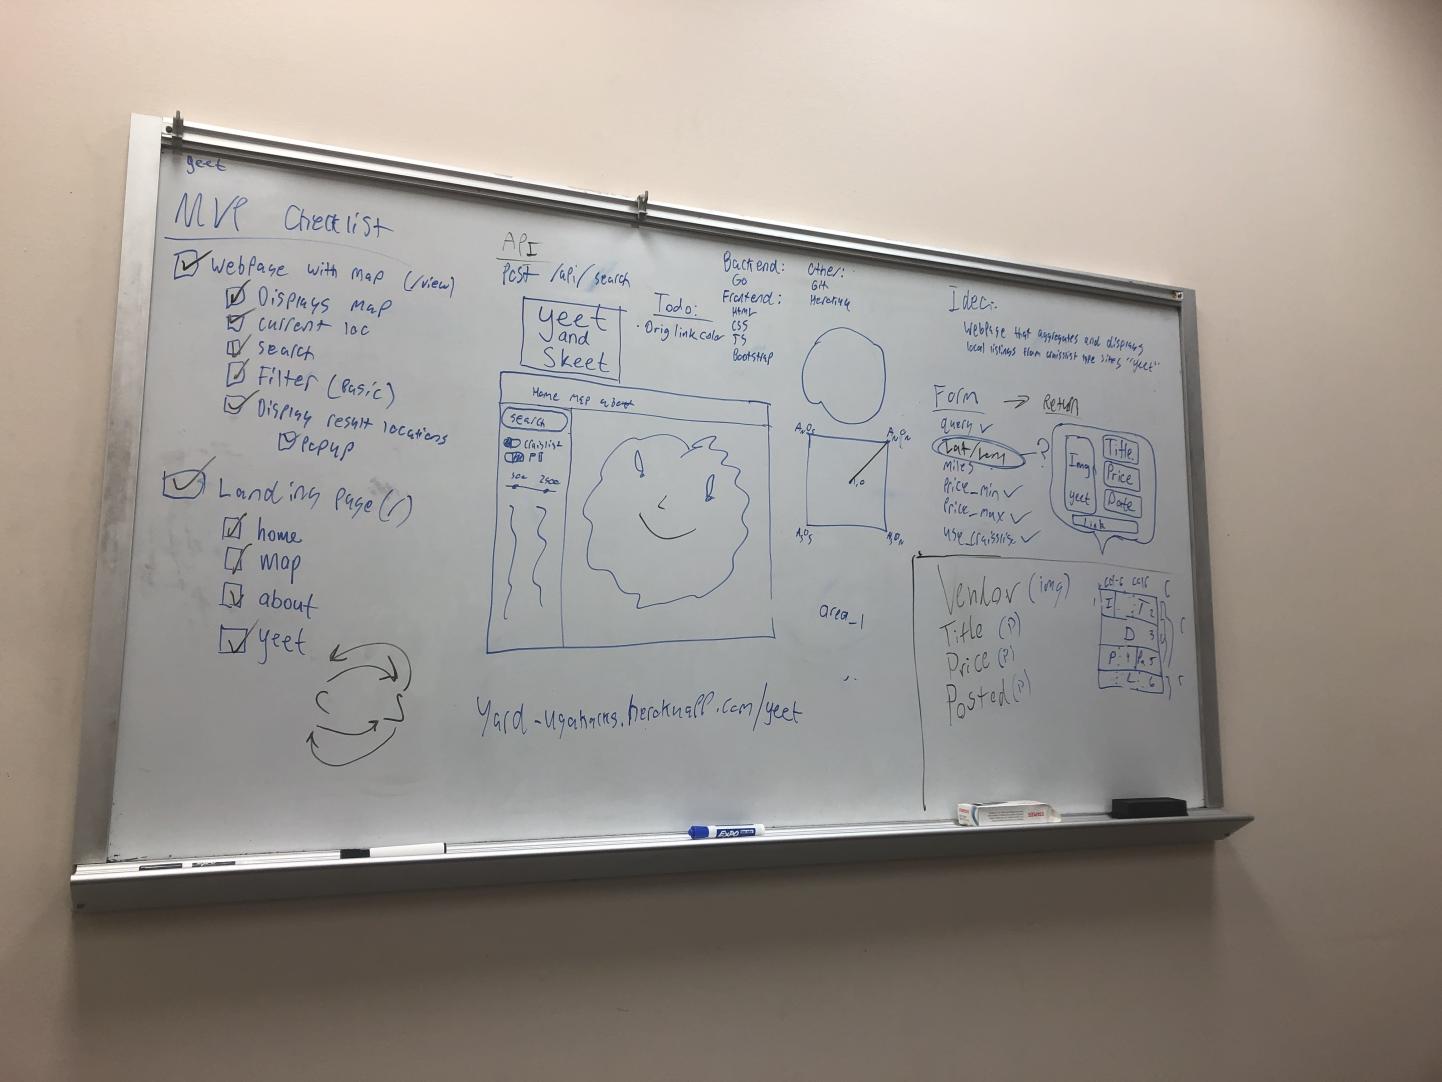 yeet
MVP Checklist
Webpage with map (/view)
Displays map
current loc
search
Filter (Basic)
Display result locations
Popup
Landing page (/)
home
map
about
yeet
API
Post /api/search
yeet
and
Skeet
Todo:
· Orig link color
Backend:
Go
Frontend:
HTML
CSS
JS
Bootstrap
Other:
Git
Home map about
search
craigslist
500 2500
yard-ugahacks.herokuapp.com/yeet
area_1
Idea:
Webpage that aggregates and displays
local listings from craigslist type sites "yeet"
Form → Return
query ✓
Lat/Long - ?
miles
Price_min ✓
Price_max ✓
use_craigslist ✓
Img
yeet
Title
Price
Date
Link
Vendor (img)
Title (P)
Price (P)
Posted (P)
I T 2
D 3
P 4 Pa 5
L 6
EXPO